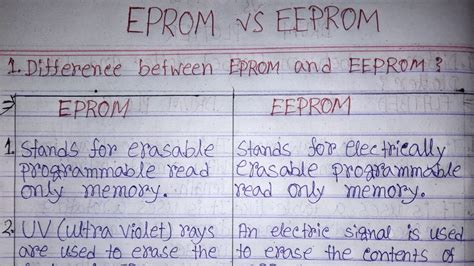 EPROM VS EEPROM
1. Difference between EPROM and EEPROM ?
EPROM
EEPROM
1. Stands for erasable
programmable read
only memory.
Stands for electrically
erasable programmable
read only memory.
2. UV (ultra violet) rays
are used to erase the
An electric signal is used
to erase the contents of